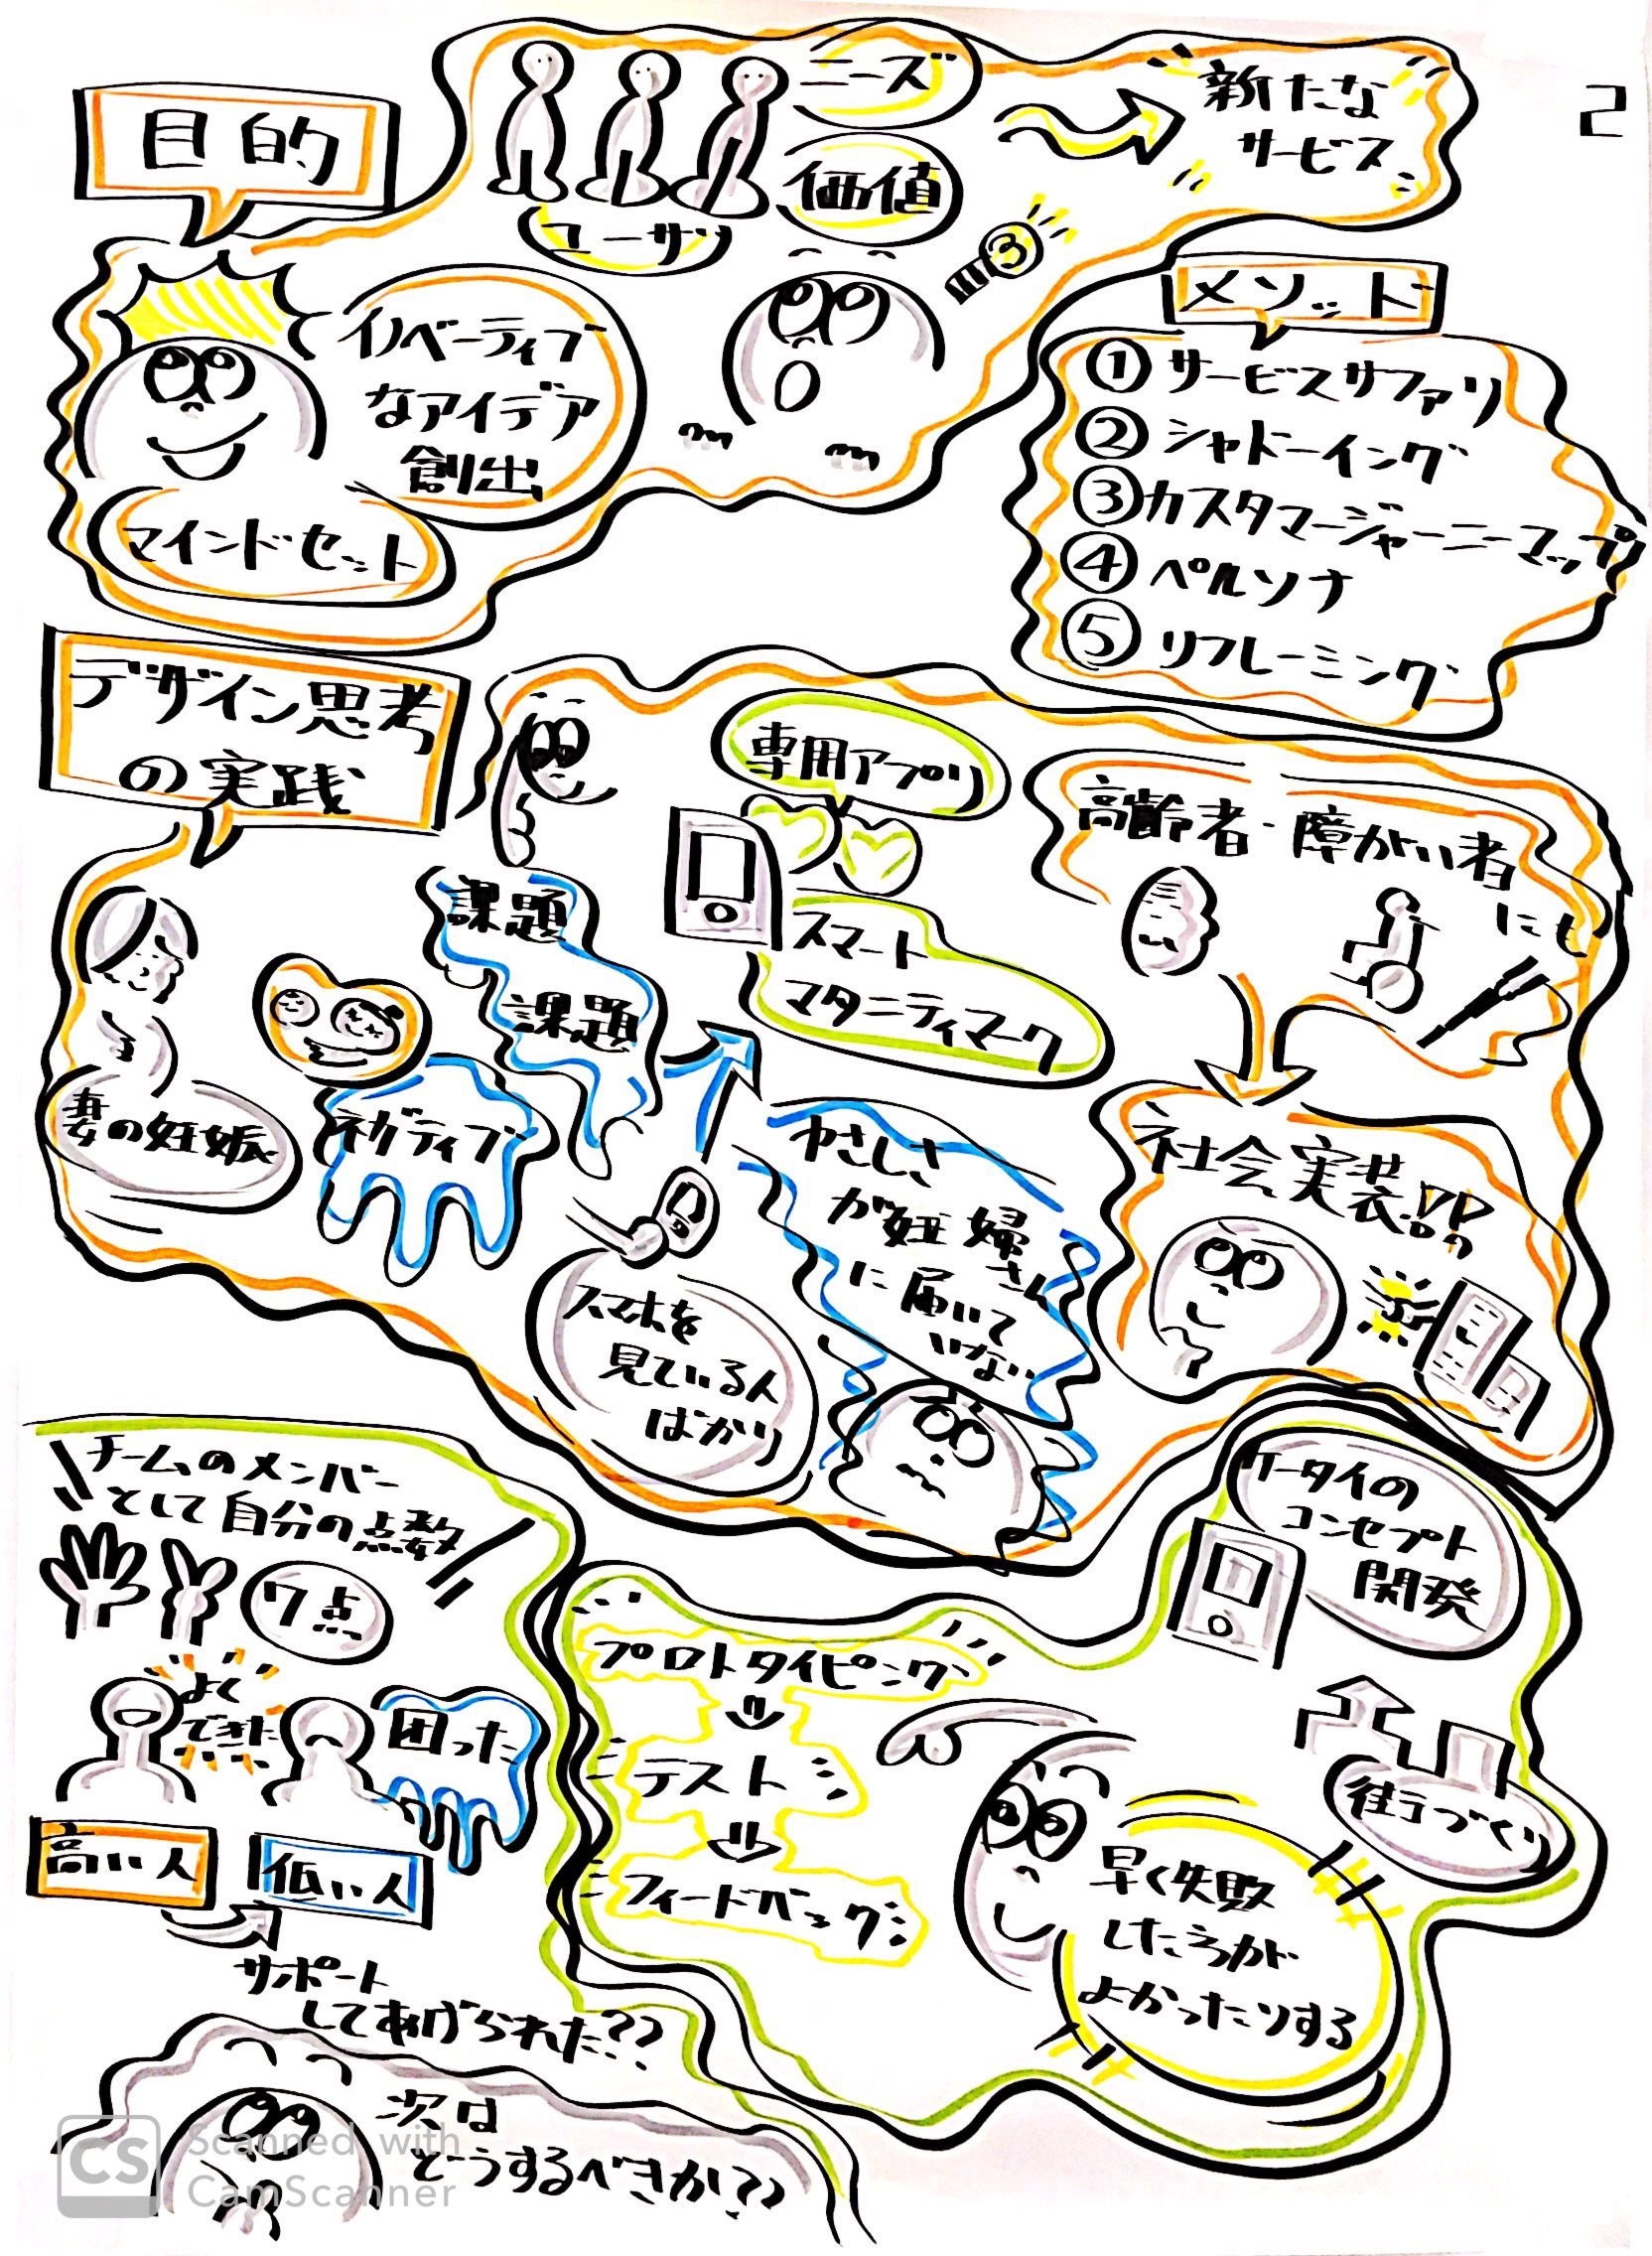 2
目的
ニーズ
価値
ユーザ
新たな
サービス
3
イノベーティブ
なアイデア
創出
マインドセット
メソッド
① サービスサファリ
② シャドーイング
③ カスタマージャーニーマップ
④ ペルソナ
⑤ リフレーミング
デザイン思考
の実践
妻の妊娠
ネガティブ
課題
課題
専用アプリ
スマート
マタニティマーク
スマホを
見ている人
ばかり
やさしさ
が妊婦
さん
に届いて
いない
高齢者・障がい者
にも
社会実装!?
チームのメンバー
として自分の点数
7点
よく
できた
困った
高い人
低い人
サポート
してあげられた??
次は
どうするべきか??
プロトタイピング
テスト
フィードバック
ケータイの
コンセプト
開発
街づくり
早く失敗
したろうが
よかったりする
CS Scanned with
CamScanner